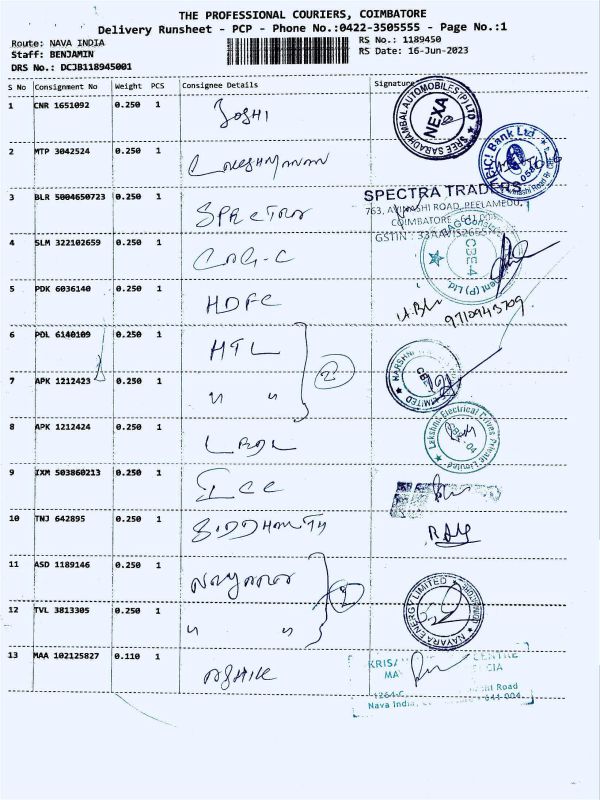 THE PROFESSIONAL COURIERS, COIMBATORE
Delivery Runsheet - PCP - Phone No.:0422-3505555 - Page No.:1
Route: NAVA INDIA
RS No.: 1189450
Staff: BENJAMIN
RS Date: 16-Jun-2023
DRS No.: DCJB118945001
S No Consignment No Weight PCS Consignee Details Signature
1 CNR 1651092 0.250 1 JOSHI
SREE SARADHAMBAL AUTOMOBILES (P) LTD
NEXA
2 MTP 3042524 0.250 1
ICICI Bank Ltd
3 BLR 5004650723 0.250 1 SPECTRA
SPECTRA TRADERS
763, AVINASHI ROAD, PEELAMEDU,
COIMBATORE
GSTIN :
4 SLM 322102659 0.250 1
CBE-4
5 PDK 6036140 0.250 1 HDFC
6 PDL 6140109 0.250 1 HTL
2
7 APK 1212423 0.250 1 " "
LIMITED
8 APK 1212424 0.250 1
Lakshmi Electrical Drives Private Limited
9 IXM 503860213 0.250 1 ICC
10 TNJ 642895 0.250 1 SIDDHARTH
11 ASD 1189146 0.250 1 NAYARA
2
12 TVL 3813305 0.250 1 " "
NAYARA ENERGY LIMITED
13 MAA 102125827 0.110 1
CENTRE
Road
Nava India,